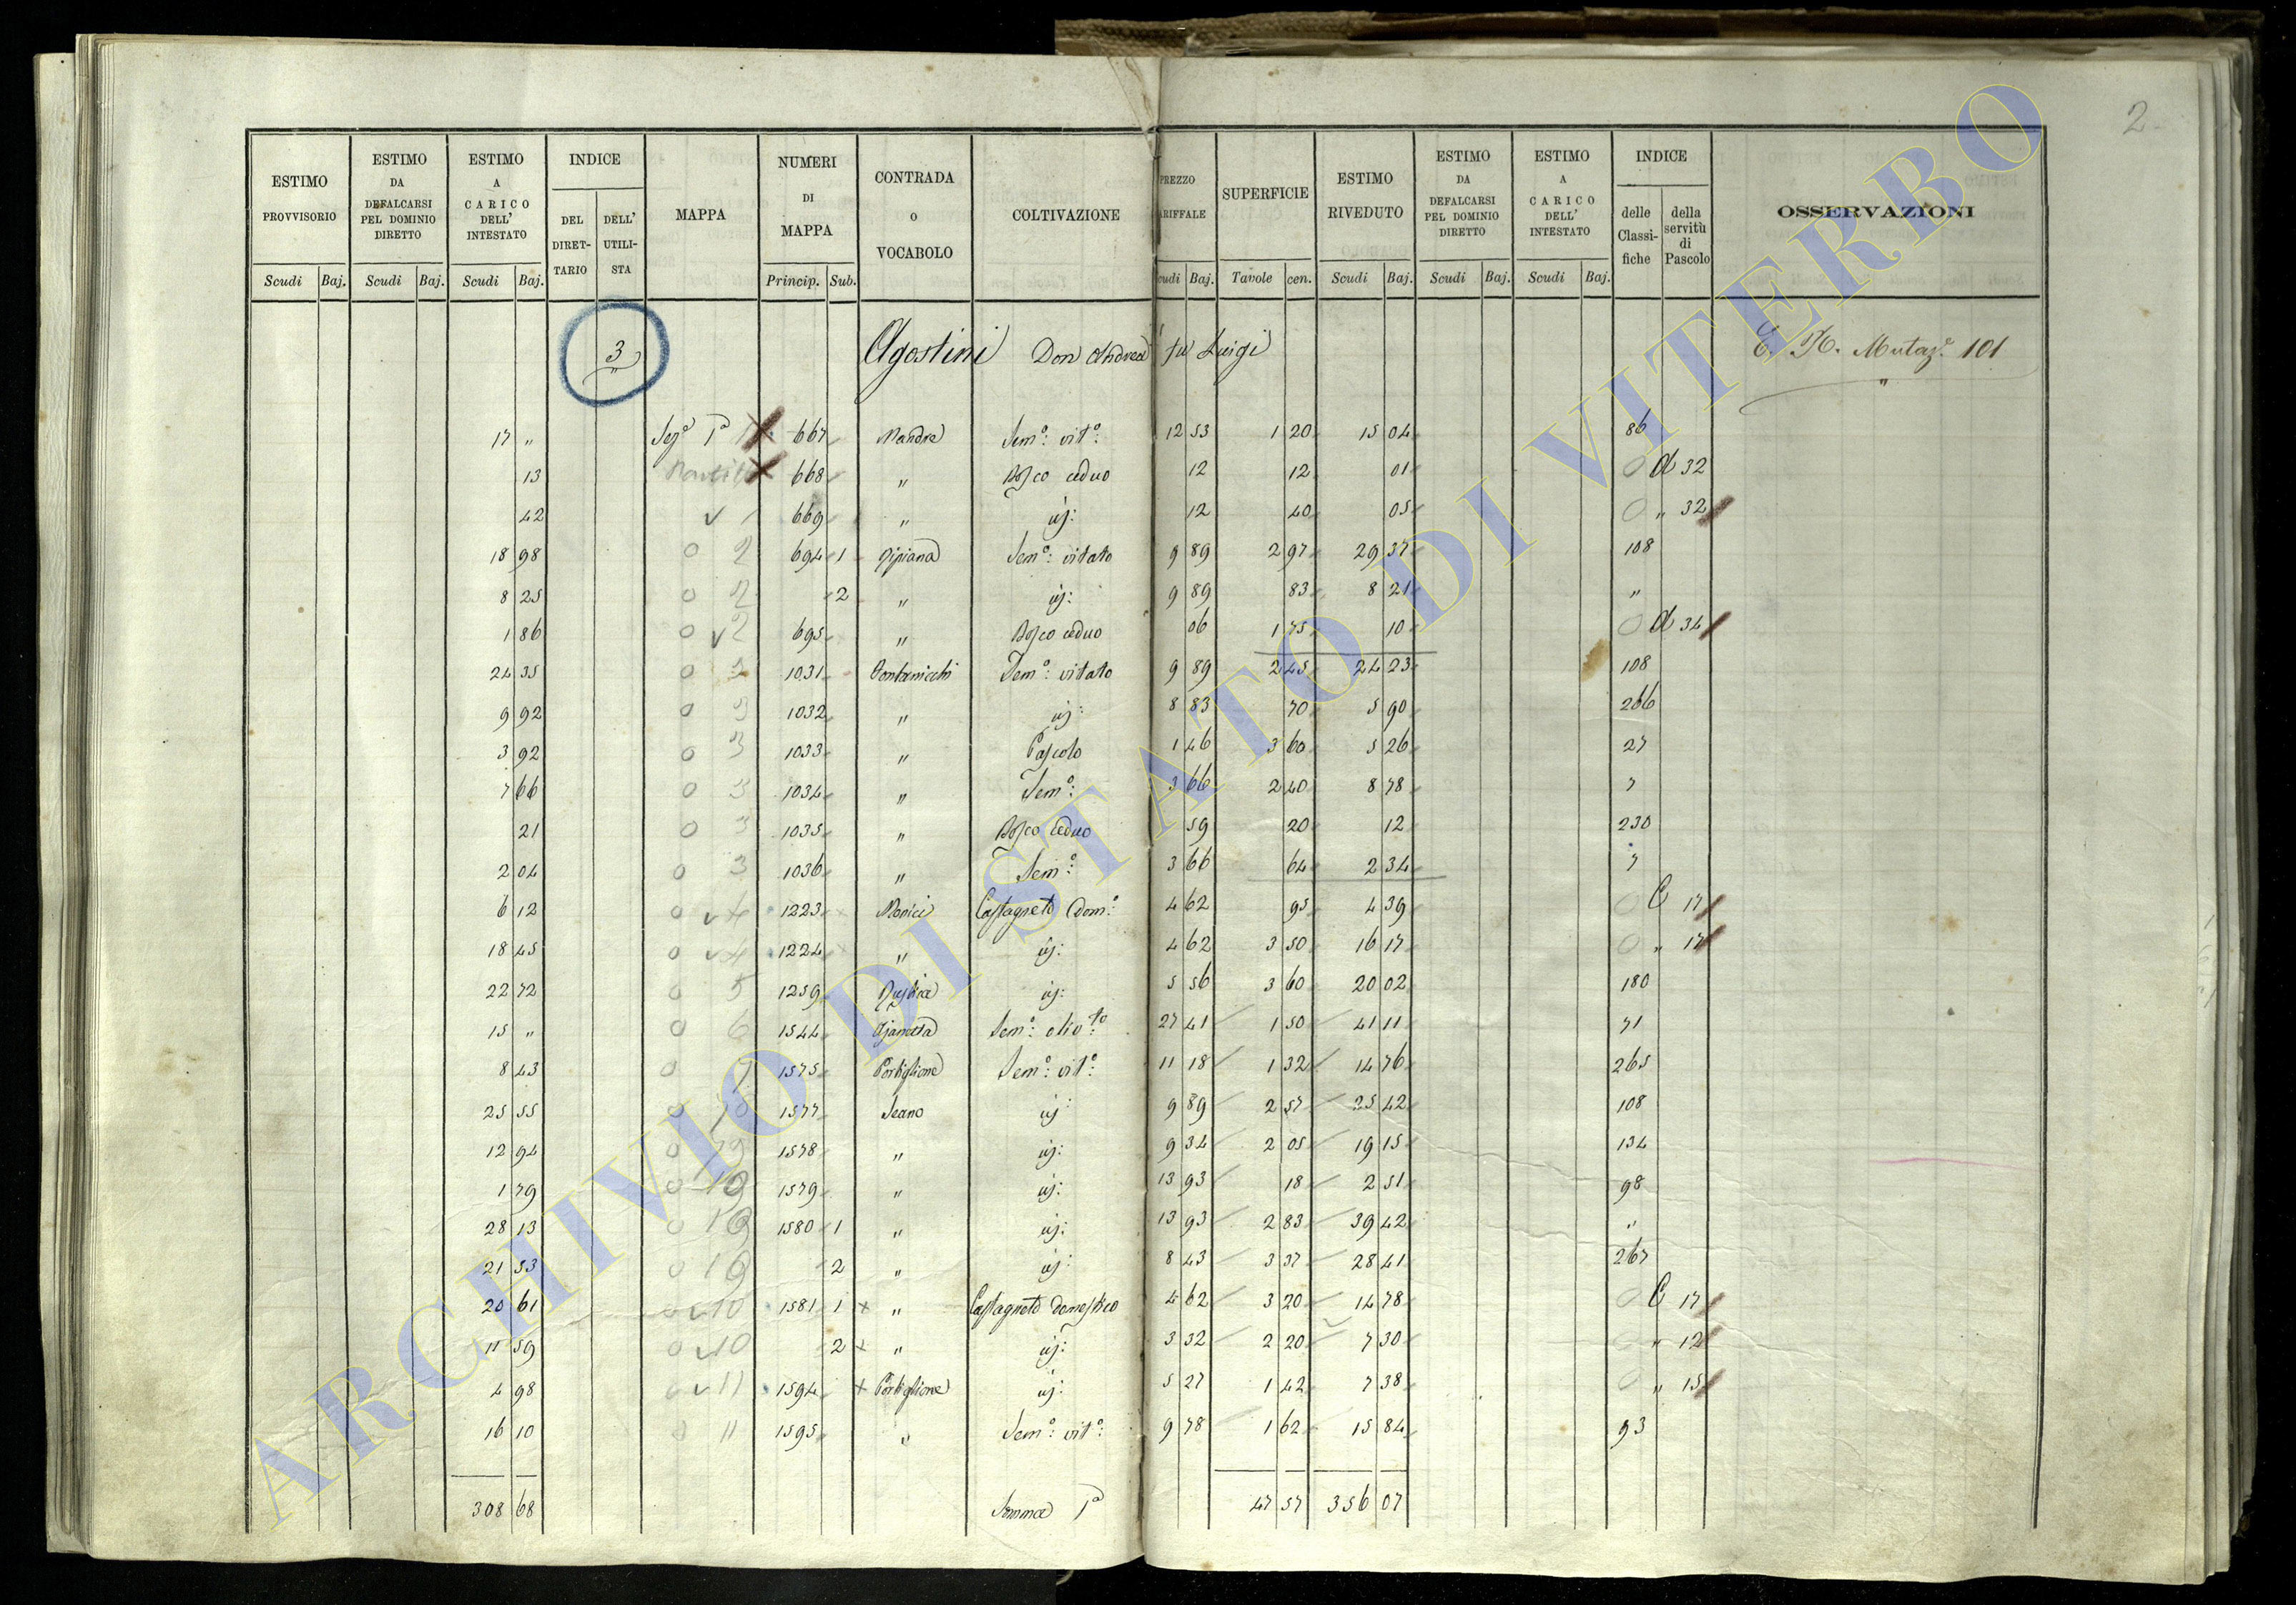 2
ESTIMO PROVVISORIO | ESTIMO DA DEFALCARSI PEL DOMINIO DIRETTO | ESTIMO A CARICO DELL' INTESTATO | INDICE | MAPPA | NUMERI DI MAPPA | CONTRADA O VOCABOLO | COLTIVAZIONE | PREZZO TARIFFALE | SUPERFICIE | ESTIMO RIVEDUTO | ESTIMO DA DEFALCARSI PEL DOMINIO DIRETTO | ESTIMO A CARICO DELL' INTESTATO | INDICE | OSSERVAZIONI
DEL DIRETTARIO | DELL' UTILISTA | delle Classifiche | della servitù di Pascolo
Scudi | Baj. | Scudi | Baj. | Scudi | Baj. | Princip. | Sub. | Scudi | Baj. | Tavole | cen. | Scudi | Baj. | Scudi | Baj. | Scudi | Baj.
3 Agostini Don Andrea fu Luigi 101
17 " Sez.e 1a 1 667 Mandre Sem.o: vit.o: 12 53 1 20 15 04 86
13 668 " Bosco ceduo 12 12 01 0 A 32
42 1 669 " id: 12 40 05 0 " 32
18 98 0 2 694 1 Sem.o: vitato 9 89 2 97 29 37 108
8 25 0 2 2 " id: 9 89 83 8 21 "
1 86 0 2 695 " Bosco ceduo 06 1 75 10 0 A 34
24 35 0 3 1031 Sem.o: vitato 9 89 2 45 24 23 108
9 92 0 3 1032 " id: 8 83 70 5 90 266
3 92 0 3 1033 " Pascolo 1 46 3 60 5 26 27
7 66 0 3 1034 " Sem.o: 3 66 2 40 8 78 7
21 0 3 1035 " Bosco ceduo 59 20 12 230
2 04 0 3 1036 " Sem.o: 3 66 64 2 34 7
6 12 0 4 1223 Monici Castagneto dom.o: 4 62 95 4 39 0 C 17
18 45 0 4 1224 " id: 4 62 3 50 16 17 0 " 17
22 72 0 5 1259 id: 5 56 3 60 20 02 180
15 " 0 6 1544 Sem.o: oliv.to: 27 41 1 50 41 11 71
8 43 0 7 1575 Portiglione Sem.o: vit.o: 11 18 1 32 14 76 265
25 55 0 10 1577 Seano id: 9 89 2 57 25 42 108
12 94 0 1578 " id: 9 34 2 05 19 15 134
1 79 0 10 1579 " id: 13 93 18 2 51 98
28 13 0 10 1580 1 " id: 13 93 2 83 39 42 "
21 53 0 10 2 " id: 8 43 3 37 28 41 267
20 61 0 10 1581 1 + " Castagneto domestico 4 62 3 20 14 78 0 C 17
11 59 0 10 2 + " id: 3 32 2 20 7 30 0 " 12
4 98 0 11 1594 + Portiglione id: 5 27 1 42 7 38 0 " 15
16 10 0 11 1595 " Sem.o: vit.o: 9 78 1 62 15 84 93
308 68 Somma 1a 47 57 356 07
ARCHIVIO DI STATO DI VITERBO